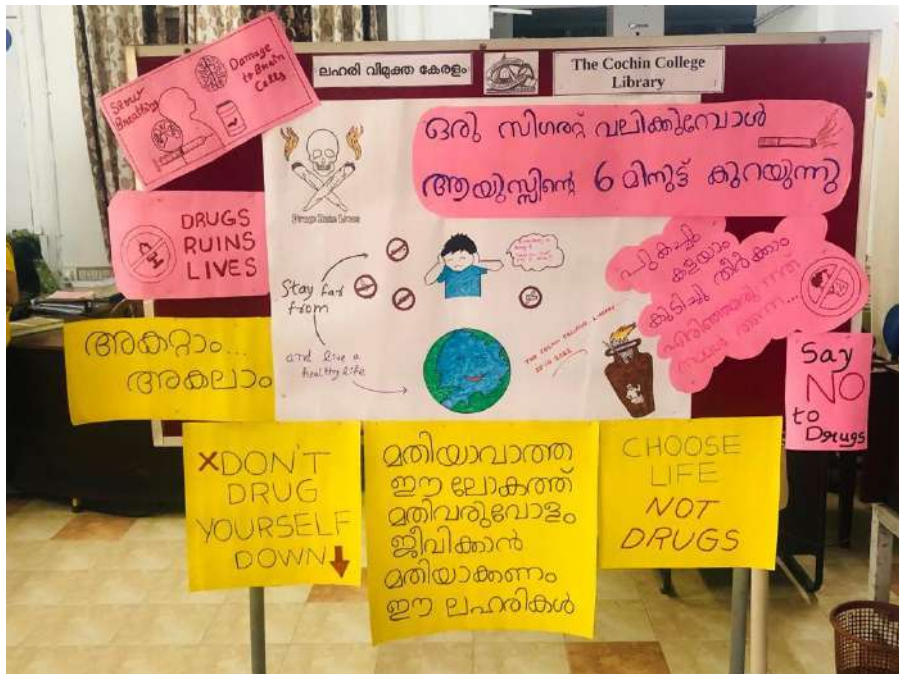 Damage
to Brain
Cells
Breathing
ലഹരി വിമുക്ത കേരളം
The Cochin College
Library
ഒരു സിഗരറ്റ് വലിക്കുമ്പോൾ
ആയുസ്സിന്റെ 6 മിനുട്ട് കുറയുന്നു
DRUGS
RUINS
LIVES
Stay far
from
and live a
healthy life
THE COCHIN COLLEGE LIBRARY
പുകച്ചു
കളയാം
കുടിച്ചു തീർക്കാം
അകറ്റാം...
അകലാം
Say
NO
to
Drugs
XDON'T
DRUG
YOURSELF
DOWN
മതിയാവാത്ത
ഈ ലോകത്ത്
മതിവരുവോളം
ജീവിക്കാൻ
മതിയാക്കണം
ഈ ലഹരികൾ
CHOOSE
LIFE
NOT
DRUGS